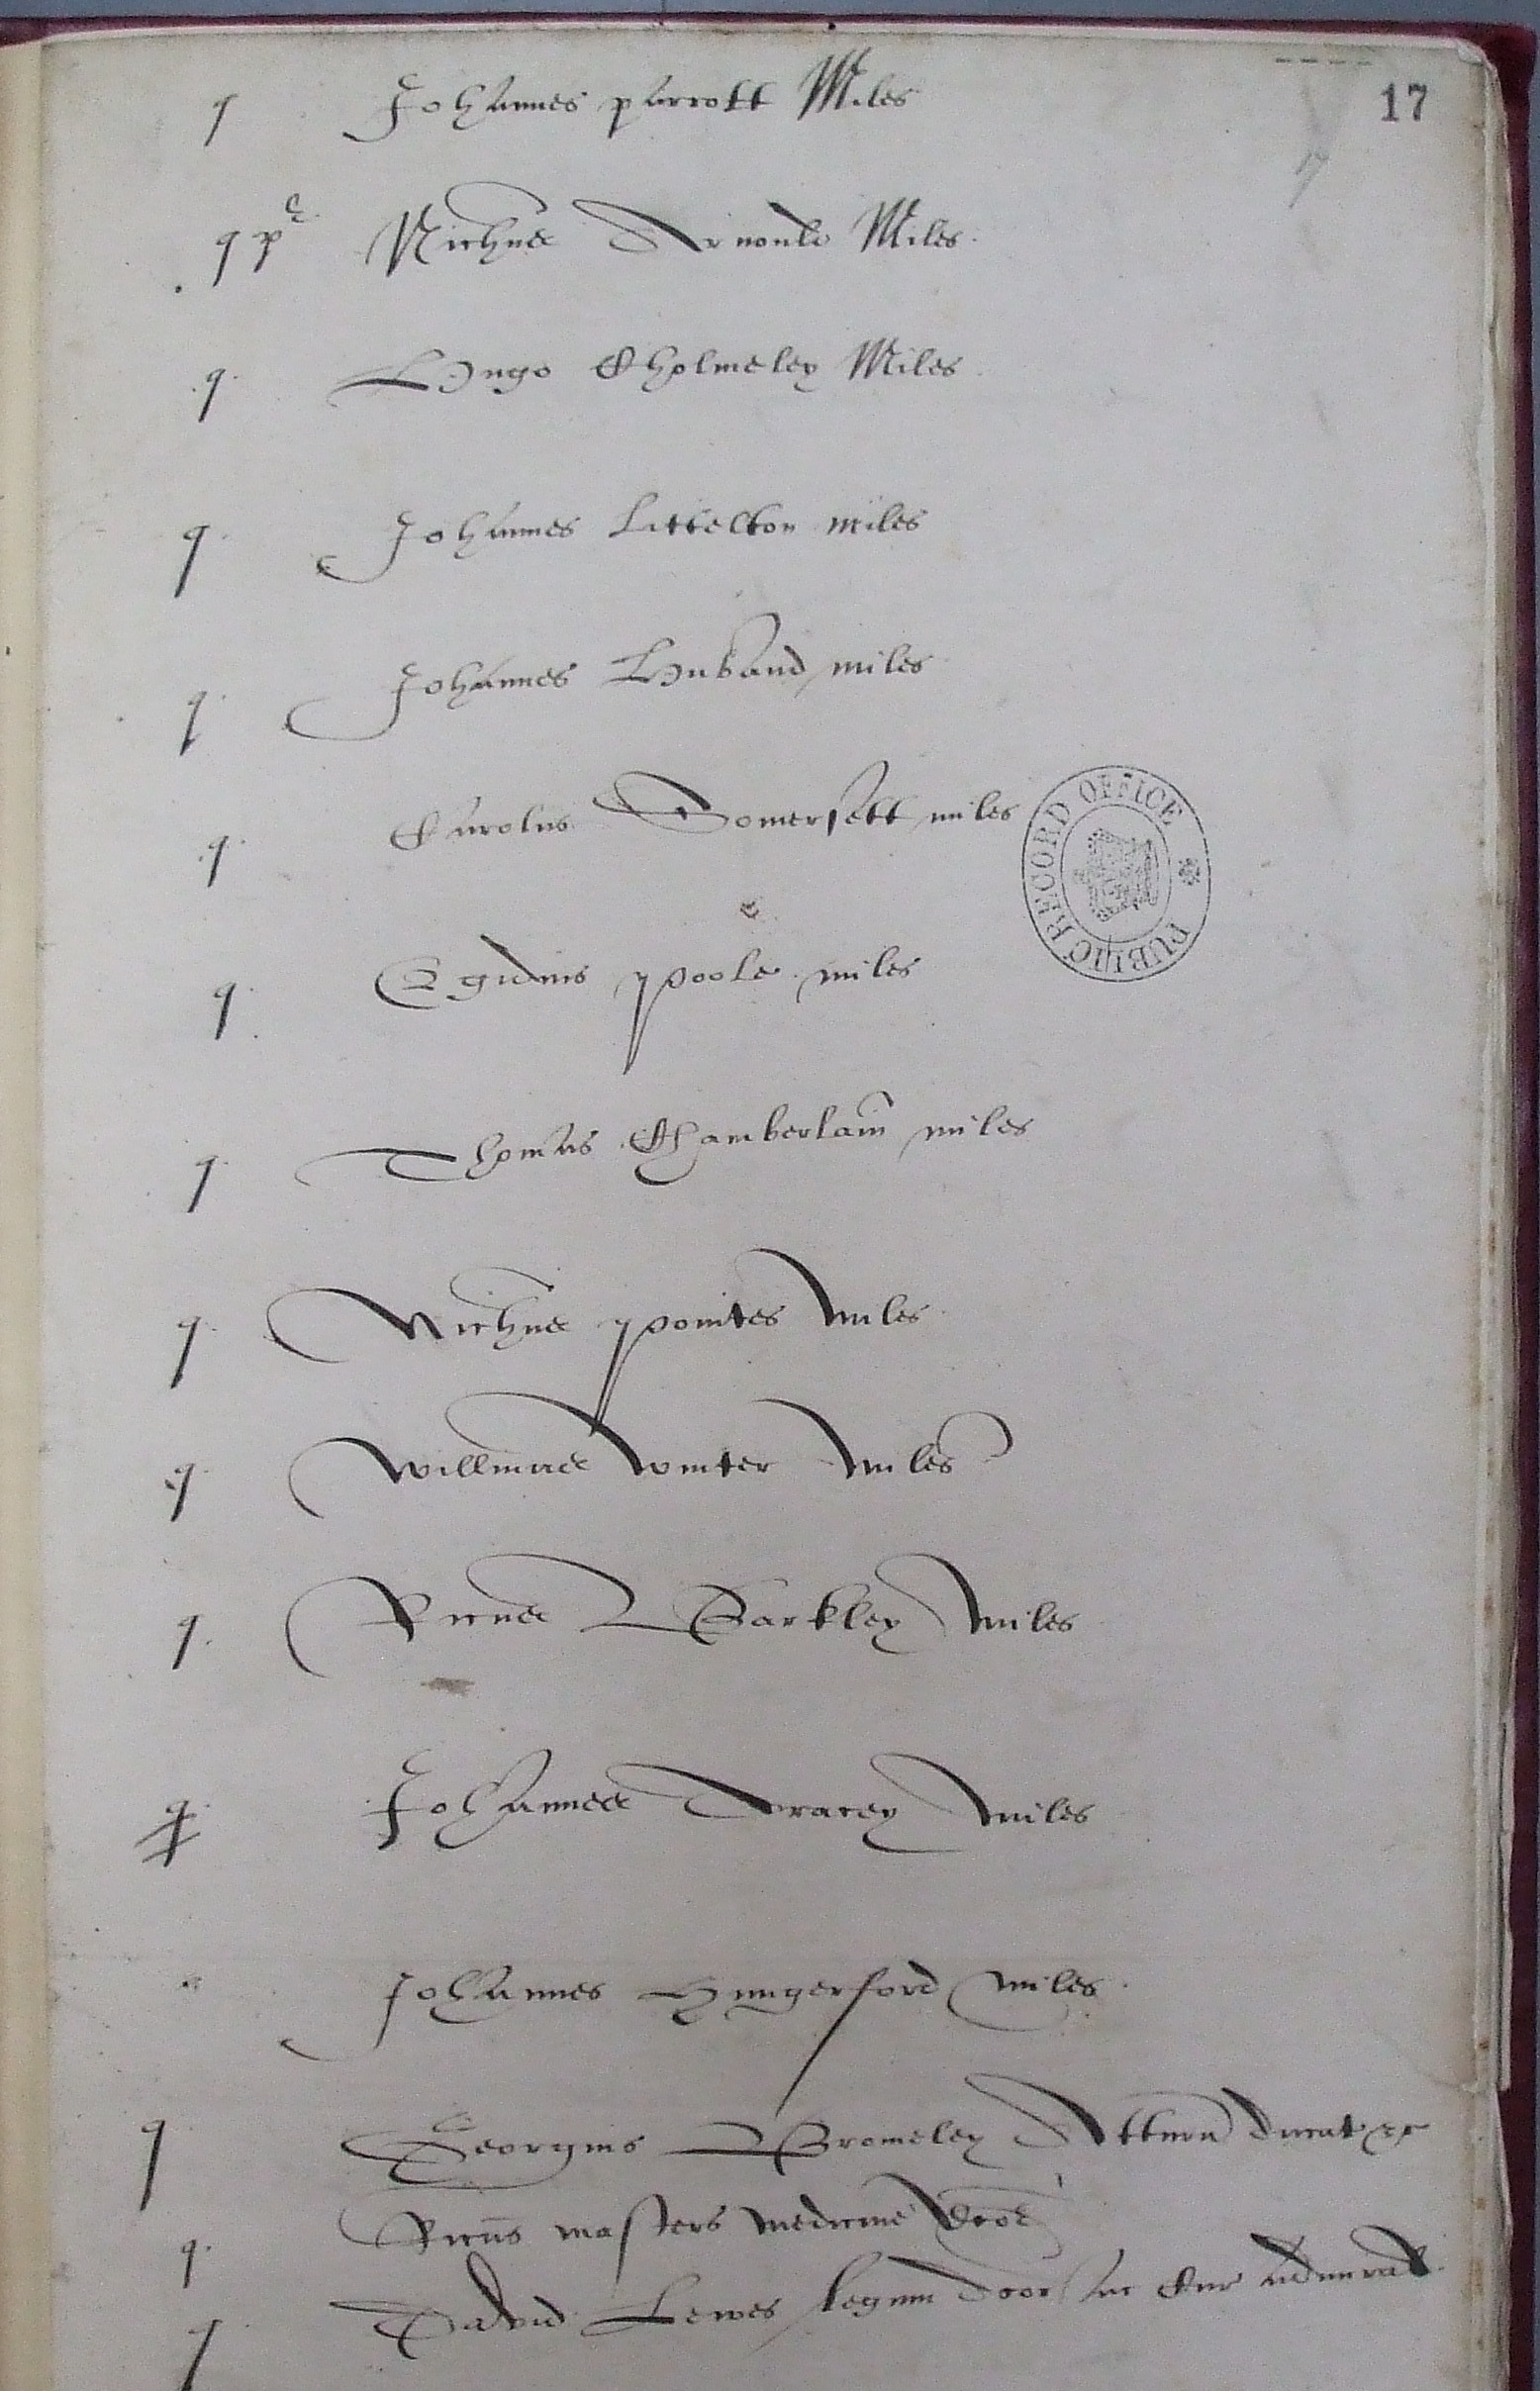 17
17
q Johannes parrott Miles
q p Nichus Arnoulde Miles
q Hugo Cholmeley Miles
q Johannes Littelton miles
q Johannes Huband miles
q Carolus Somersett miles
PUBLIC RECORD OFFICE
q Egidius Poole miles
q Thomas Chamberlain miles
q Nichus Pointes Miles
q Willmus Winter Miles
q Ricus Barkley Miles
q Johannes Tracey Miles
Johannes Hungerford miles
q Georgius Bromeley Atturn ducat
q Ricus masters medicine
q David Lewes legum door ac Cur admirat